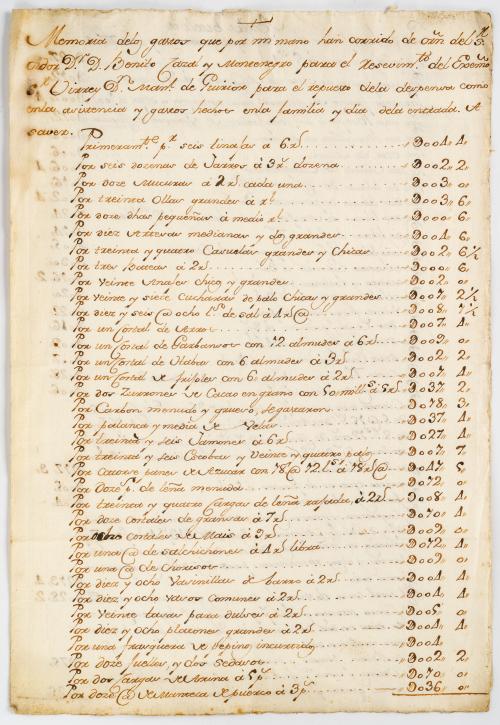 Memoria delos gastos que por mi mano han corrido de orn del S.r
D.r D. Benito Cazal y Montenegro para el Resevim.to del Exsmo
S.r Virrey D.n Man.l de Guirior para el repuesto dela despensa como
enla asistencia y gastos hechos enla familia y dia dela entrada. A
saver.
Primeram.te p.r seis tinajas a 6 r.s ,,D004,, 4,,
Por seis dozenas de Jarros à 3 r.s dozena ,,D002,, 2,,
Por doze Mucuras à 2 r.s cada una ,,D003,, 0,,
Por treinta Ollas grandes à r.l ,,D003,, 6,,
Por doze dhas pequeñas à medio r.l ,,D000,, 6,,
Por diez Artesas medianas y dos grandes ,,D004,, 6,,
Por treinta y quatro Casuelas grandes y chicas ,,D002,, 6 1/2
Por tres bateas à 2 r.s ,,D000,, 6,,
Por veinte chicos y grandes ,,D002,, 0,,
Por veinte y siete Cucharas de palo chicas y grandes ,,D007,, 2 1/2
Por diez y seis @ ocho l.s de sal à 4 r.s @ ,,D008,, 1 1/2
Por un costal de Arros ,,D007,, 4,,
Por un Costal de Garbansos con 12 almudes à 6 r.s ,,D009,, 0,,
Por un Costal de Habas con 6 almudes à 3 r.s ,,D002,, 2,,
Por un Costal de frisoles con 6 almudes à 2 r.s ,,D007,, 4,,
Por dos Zurrones de Cacao en grano con 50 mill.s à 5 r.s ,,D037,, 2,,
Por Carbon menudo y grueso, se gastaron ,,D078,, 3,,
Por palanca y media de Velas ,,D037,, 4,,
Por treinta y seis Jamones à 6 r.s ,,D027,, 4,,
Por treinta y seis Escobas y veinte y quatro palos ,,D007,, 7,,
Por Catorse panes de Azucar con 18 @ 12 l.s à 18 r.s @ ,,D047,, 5,,
Por doze p.s de leña menuda ,,D012,, 0,,
Por treinta y quatro Cargas de leña rajada, à 2 r.s ,,D008,, 4,,
Por doze costales de granzas à 7 r.s ,,D070,, 0,,
Por ocho costales de Mais à 3 r.s ,,D002,, 0,,
Por una @ de salchichones à 4 r.s libra ,,D072,, 4,,
Por una @ de Chorisos ,,D009,, 0,,
Por diez y ocho Vasinillas de barro à 2 r.s ,,D004,, 4,,
Por diez y ocho vasos Comunes à 2 r.s ,,D004,, 4,,
Por veinte tasas para dulses à 2 r.s ,,D005,, 0,,
Por diez y ocho platones grandes à 2 r.s ,,D004,, 4,,
Por una frasquera de Pepino incurtido ,,D004,,
Por doze fuelles y dos Sedasos ,,D002,, 2,,
Por dos Cargas de Arina à 5 p.s ,,D070,, 0,,
Por doze @ de Manteca de puerco à 3 p.s ,,D036,, 0,,